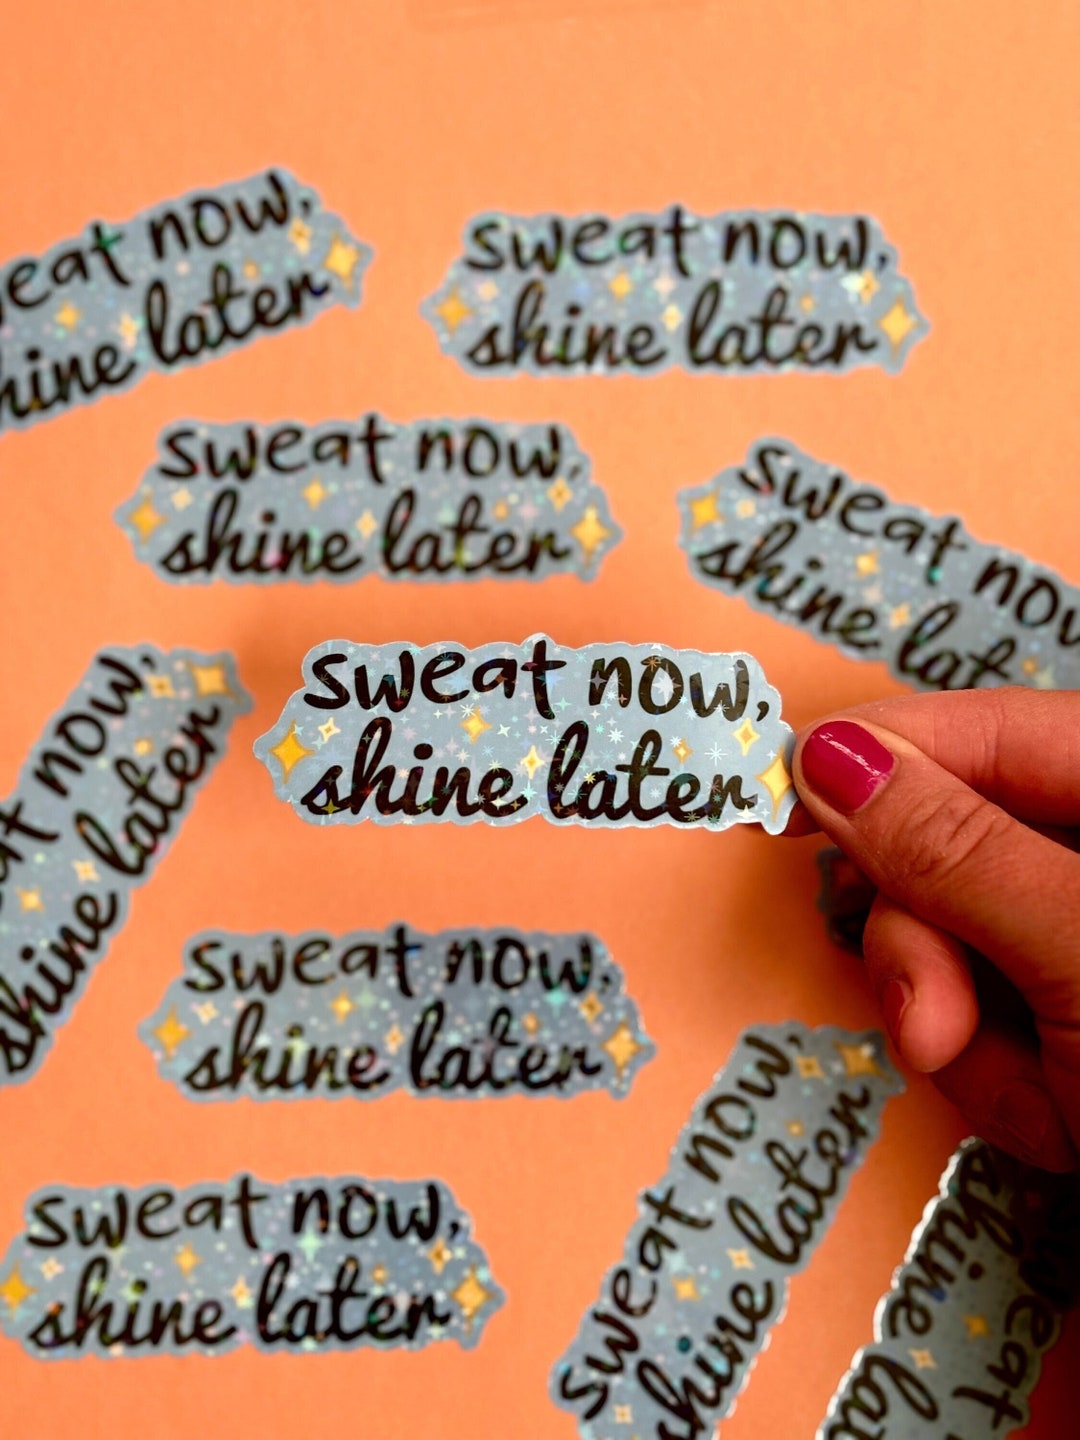 sweat now,
shine later
sweat now,
shine later
sweat now,
shine later
sweat now,
shine lat
sweat now,
shine later
sweat now,
shine later
sweat now,
shine later
sweat now,
shine later
sweat now,
shine later
shine la